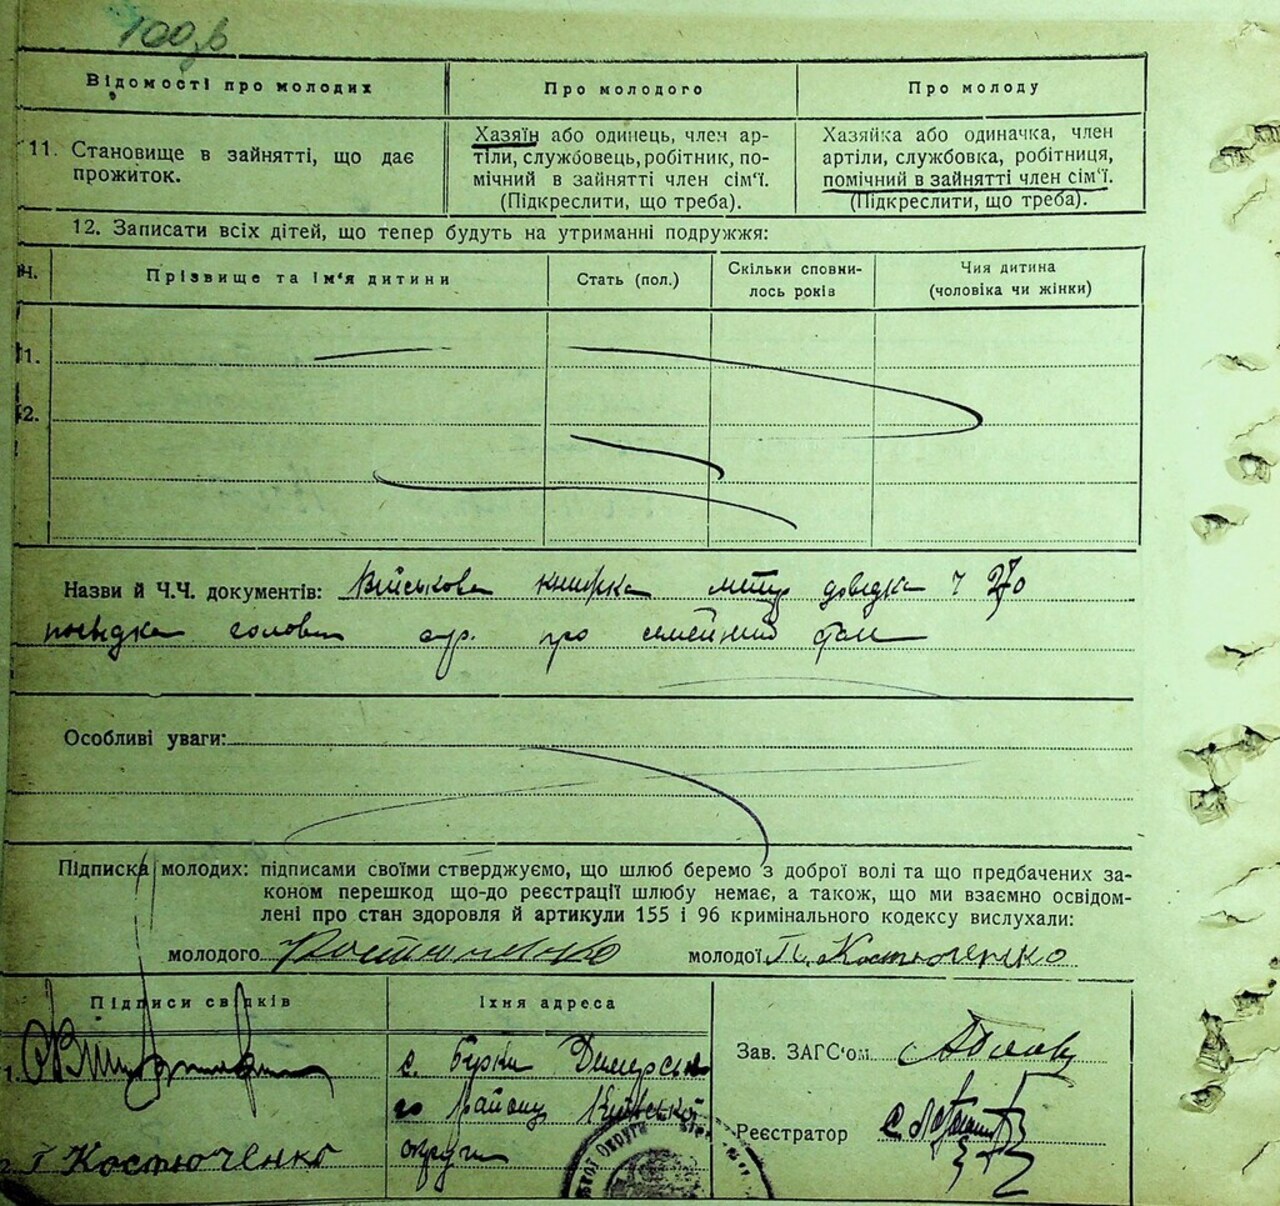 100зв
Відомості про молодих
Про молодого
Про молоду
11. Становище в зайнятті, що дає
прожиток.
Хазяїн або одинець, член ар-
тіли, службовець, робітник, по-
мічний в зайнятті член сім'ї.
(Підкреслити, що треба).
Хазяйка або одиначка, член
артіли, службовка, робітниця,
помічний в зайнятті член сім'ї.
(Підкреслити, що треба).
12. Записати всіх дітей, що тепер будуть на утриманні подружжя:
Ч.
Прізвище та ім'я дитини
Стать (пол.)
Скільки сповни-
лось років
Чия дитина
(чоловіка чи жінки)
1.
2.
Назви й Ч.Ч. документів: Військова книжка метр довідка Ч
посвідка голови про семейний стан
Особливі уваги:
Підписка молодих: підписами своїми стверджуємо, що шлюб беремо з доброї волі та що предбачених за-
коном перешкод що-до реєстрації шлюбу немає, а також, що ми взаємно освідом-
лені про стан здоровля й артикули 155 і 96 кримінального кодексу вислухали:
молодого Костюченко молодої П. Костюченко
Підписи свідків
Їхня адреса
1.
с. Бірки Димерсько
го Району Київської
округи
Г Костюченко
Зав. ЗАГС'ом
Реєстратор
ОКРУГИ